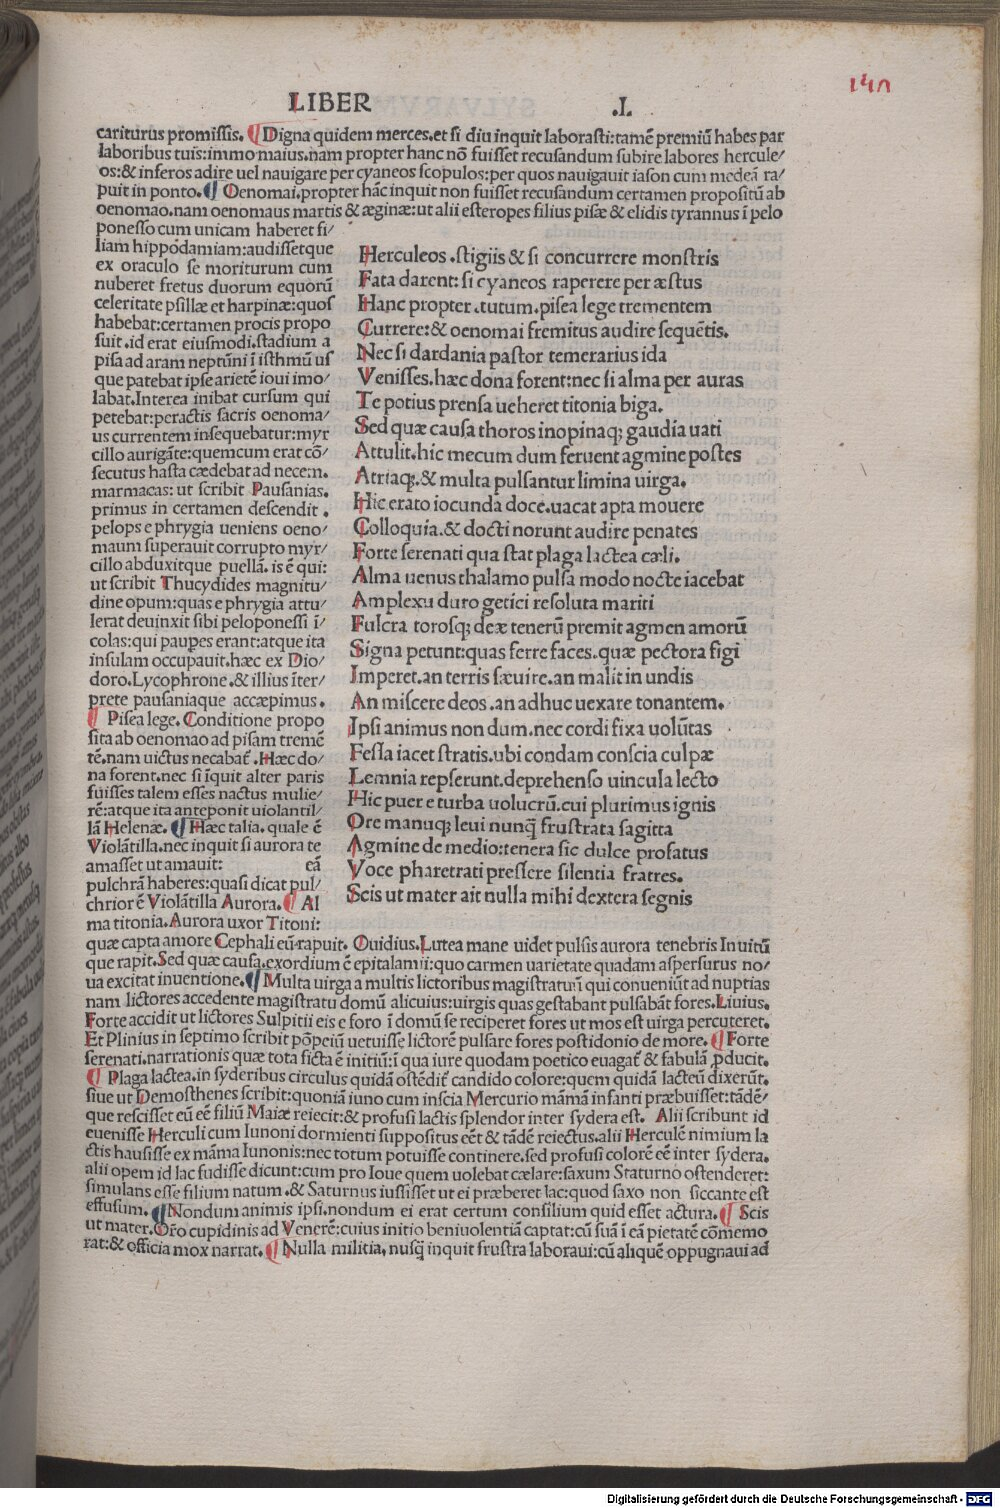 LIBER .I.
140
cariturus promissis. ¶ Digna quidem merces.et si diu inquit laborasti:tamē premiū habes par
laboribus tuis:immo maius.nam propter hanc nō fuisset recusandum subire labores hercule/
os:& inferos adire uel nauigare per cyaneos scopulos:per quos nauigauit iason cum medeā ra/
puit in ponto. ¶ Oenomai.propter hāc inquit non fuisset recusandum certamen propositū ab
oenomao.nam oenomaus martis & æginæ:ut alii esteropes filius pisæ & elidis tyrannus ī pelo
ponesso cum unicam haberet fi/
liam hippodamiam:audissetque
ex oraculo se moriturum cum
nuberet fretus duorum equorū
celeritate psillæ et harpinæ:quos
habebat:certamen procis propo
suit.id erat eiusmodi.stadium a
pisa ad aram neptūni ī isthmū us
que patebat ipse arietē ioui imo/
labat.Interea inibat cursum qui
petebat:peractis sacris oenoma/
us currentem insequebatur:myr
cillo aurigāte:quemcum erat cō/
secutus hasta cædebat ad necem.
marmacas: ut scribit Pausanias.
primus in certamen descendit .
pelops e phrygia ueniens oeno/
maum superauit corrupto myr/
cillo abduxitque puellā. is ē qui:
ut scribit Thucydides magnitu/
dine opum:quas e phrygia attu/
lerat deuinxit sibi peloponessi ī/
colas:qui paupes erant:atque ita
insulam occupauit.hæc ex Dio/
doro.Lycophrone.& illius īter/
prete pausaniaque accæpimus.
¶ Pisea lege. Conditione propo
sita ab oenomao ad pisam tremē
tē.nam uictus necabat̄. Hæc do/
na forent.nec si īquit alter paris
fuisses talem esses nactus mulie/
rē:atque ita anteponit uiolantil/
lā Helenæ. ¶ Hæc talia. quale ē
Violātilla.nec inquit si aurora te
amasset ut amauit: eā
pulchrā haberes:quasi dicat pul/
chrior ē Violātilla Aurora. ¶ Al
ma titonia. Aurora uxor Titoni:
Herculeos .stigiis & si concurrere monstris
Fata darent: si cyaneos raperere per æstus
Hanc propter .tutum.pisea lege trementem
Currere:& oenomai fremitus audire sequētis.
Nec si dardania pastor temerarius ida
Venisses.hæc dona forent:nec si alma per auras
Te potius prensa ueheret titonia biga.
Sed quæ causa thoros inopinaq; gaudia uati
Attulit.hic mecum dum feruent agmine postes
Atriaq;.& multa pulsantur limina uirga.
Hic erato iocunda doce.uacat apta mouere
Colloquia.& docti norunt audire penates
Forte serenati qua stat plaga lactea cæli.
Alma uenus thalamo pulsa modo nocte iacebat
Amplexu duro getici resoluta mariti
Fulcra torosq; deæ tenerū premit agmen amorū
Signa petunt:quas ferre faces.quæ pectora figi
Imperet.an terris sæuire.an malit in undis
An miscere deos .an adhuc uexare tonantem.
Ipsi animus non dum.nec cordi fixa uolūtas
Fessa iacet stratis.ubi condam conscia culpæ
Lemnia repserunt.deprehenso uincula lecto
Hic puer e turba uolucrū.cui plurimus ignis
Ore manuq; leui nunq̄ frustrata sagitta
Agmine de medio:tenera sic dulce profatus
Voce pharetrati pressere silentia fratres.
Scis ut mater ait nulla mihi dextera segnis
quæ capta amore Cephali eū rapuit. Ouidius.Lutea mane uidet pulsis aurora tenebris Inuitū
que rapit.Sed quæ causa.exordium ē epitalamii:quo carmen uarietate quadam aspersurus no/
ua excitat inuentione. ¶ Multa uirga a multis lictoribus magistraturū qui conueniūt ad nuptias
nam lictores accedente magistratu domū alicuius:uirgis quas gestabant pulsabāt fores.Liuius.
Forte accidit ut lictores Sulpitii eis e foro ī domū se reciperet fores ut mos est uirga percuteret.
Et Plinius in septimo scribit pōpeiū uetuisse lictorē pulsare fores postidonio de more. ¶ Forte
serenati.narrationis quæ tota ficta ē initiū:ī qua iure quodam poetico euagat̄ & fabulā pducit.
¶ Plaga lactea.in syderibus circulus quidā ostēdit̄ candido colore:quem quidā lacteū dixerūt.
siue ut Demosthenes scribit:quoniā iuno cum inscia Mercurio māmā infanti præbuisset:tādē/
que rescisset eū eē filiū Maiæ reiecit:& profusi lactis splendor inter sydera est. Alii scribunt id
euenisse Herculi cum Iunoni dormienti suppositus eēt & tādē reiectus.alii Herculē nimium la
ctis hausisse ex māma Iunonis:nec totum potuisse continere.sed profusi colorē eē inter sydera.
alii opem id lac fudisse dicunt:cum pro Ioue quem uolebat cælare:saxum Staturno ostenderet:
simulans esse filium natum .& Saturnus iussisset ut ei præberet lac:quod saxo non siccante est
effusum. ¶ Nondum animis ipsi.nondum ei erat certum consilium quid esset actura. ¶ Scis
ut mater.Orō cupidinis ad Venerē:cuius initio beniuolentiā captat:cū suā ī eā pietatē cōmemo
rat:& officia mox narrat. ¶ Nulla militia, nusq̄ inquit frustra laboraui:cū aliquē oppugnaui ad
Digitalisierung gefördert durch die Deutsche Forschungsgemeinschaft - DFG